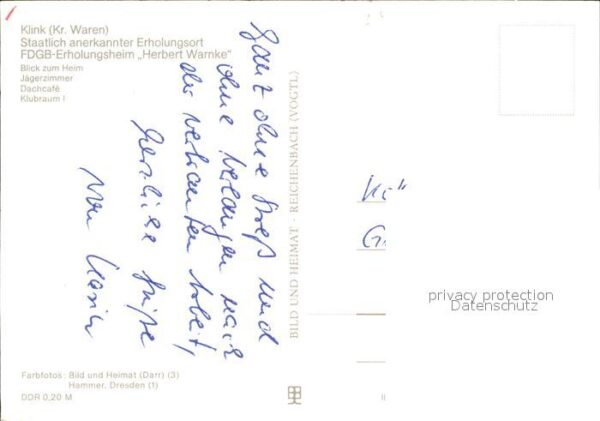 Klink (Kr. Waren)
Staatlich anerkannter Erholungsort
FDGB-Erholungsheim „Herbert Warnke“
Blick zum Heim
Jägerzimmer
Dachcafé
Klubraum I
Ganz ohne Streß und
ohne Verlangen nach
der vertrauten Arbeit,
herzliche Grüße
von Karin
BILD UND HEIMAT · REICHENBACH (VOGTL)
privacy protection
Datenschutz
Farbfotos: Bild und Heimat (Darr) (3)
Hammer, Dresden (1)
DDR 0,20 M